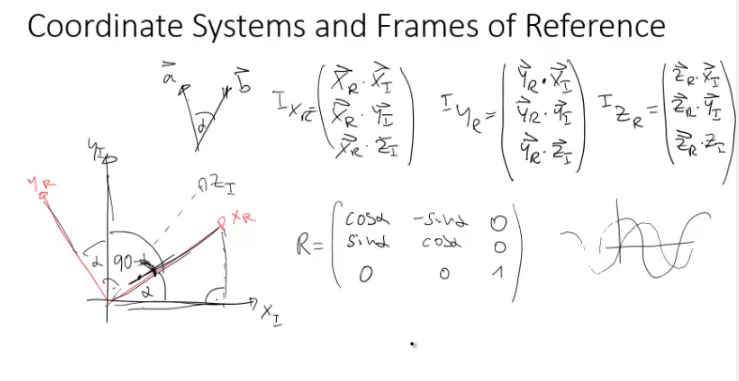 Coordinate Systems and Frames of Reference
a⃗ b⃗
α
ᴵX_R = ( X⃗_R · X⃗_I
X⃗_R · y⃗_I
X⃗_R · z⃗_I )
ᴵy_R = ( y⃗_R · X⃗_I
y⃗_R · y⃗_I
y⃗_R · z⃗_I )
ᴵz_R = ( z⃗_R · x⃗_I
z⃗_R · y⃗_I
z⃗_R · z_I )
y_I
y_R
z_I
X_R
α 90-α
α
X_I
R = ( cosα -sinα 0
sinα cosα 0
0 0 1 )